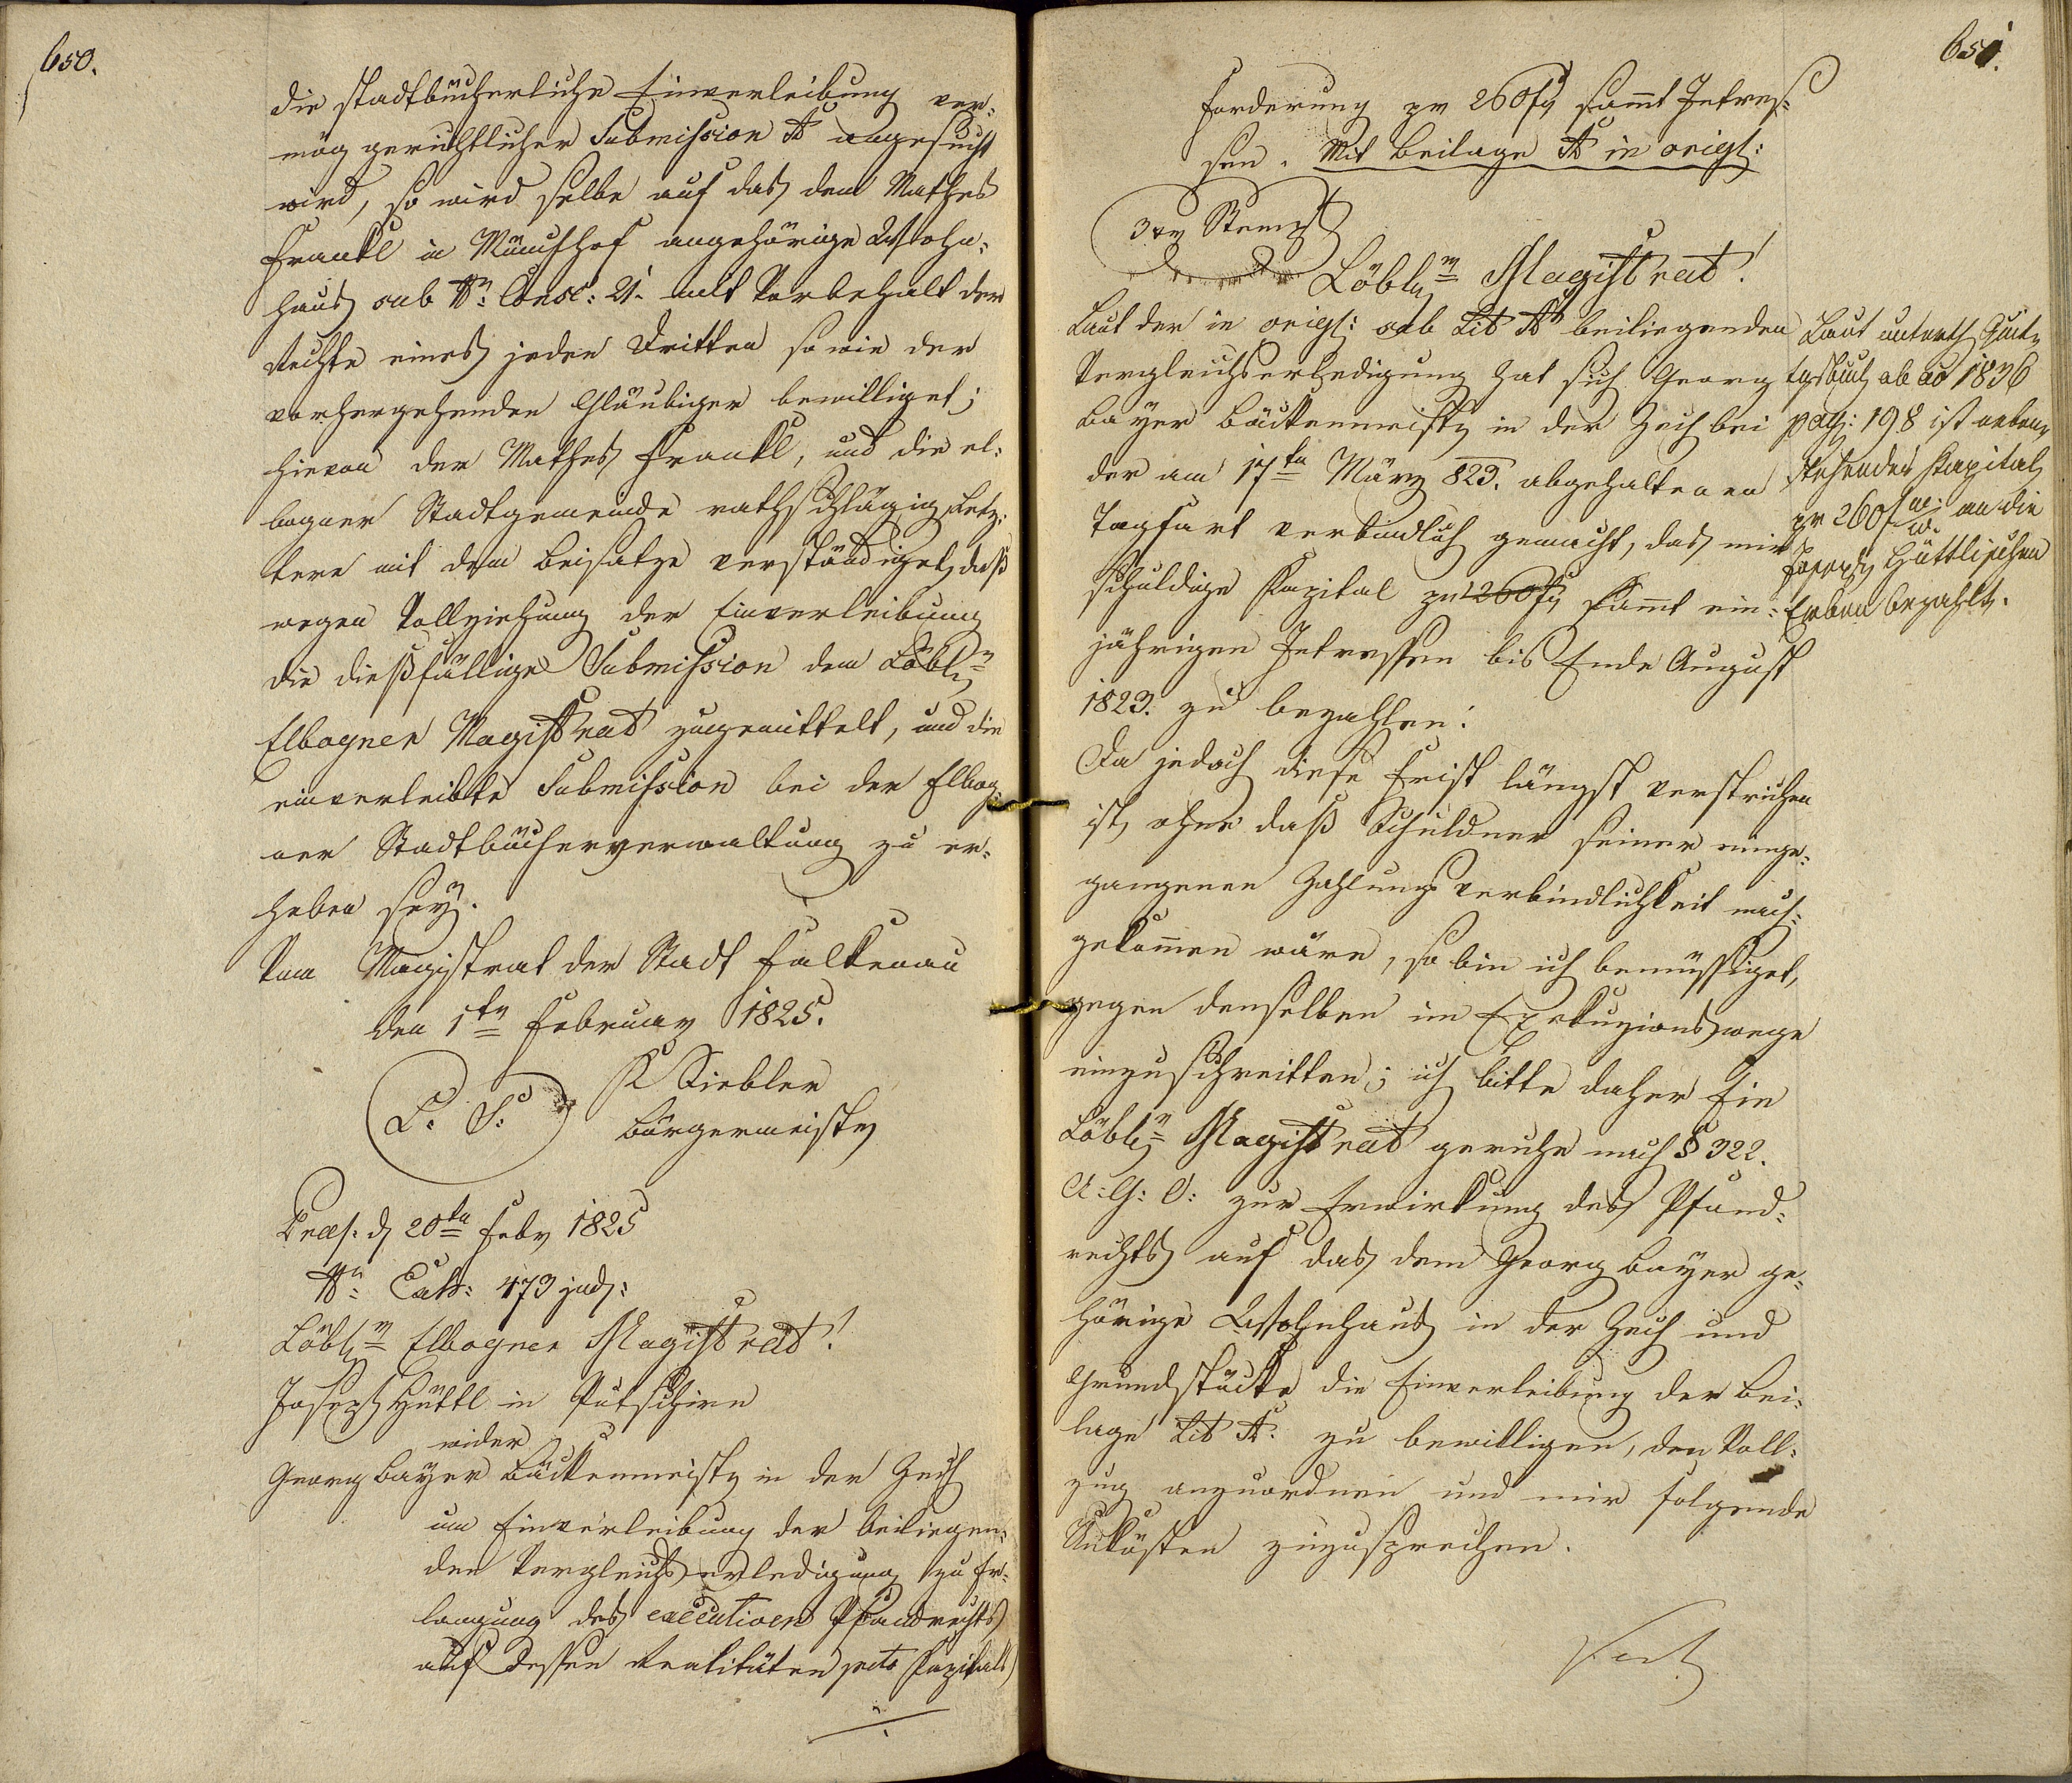 650.
die stadtbücherliche Einverleibung ver¬
mög gerichtlicher Submission A angesucht
wird, so wird selbe auf das dem Mathes
Frankl in Münchhof angehörige Wohn¬
haus sub N: Consc: 21. mit Vorbehalt der
Rechte eines jeden Dritten so wie der
vorhergehenden Gläubiger bewilliget;
hievon der Mathes Frankl, und die el¬
bogner Stadtgemeinde rathschlägig, Letz¬
tere mit dem Beisatze verständiget, daß
wegen Vollziehung der Einverleibung
die dießfällige Submission dem Löbln
Elbogner Magistrat zugemittelt, und die
einverleibte Submission bei der Elbog¬
ner Stadtbücherverwaltung zu er¬
heben sey.
Vom Magistrat der Stadt Falkenau
den 1ten February 1825.
L. S. Siebler
Bürgermeister
Praes: d 20ten Febr 1825
N: Exh: 473 jud:
Löbl: Elbogner Magistrat!
Joseph Hüttl in Putschirn
wider
Georg Bayer Bäckenmeister in der Zech
um Einverleibung der beiliegen¬
den Vergleichserledigung zu Er¬
langung des executiven Pfandrechts
auf dessen Realitäten pcto Kapitals
651.
Forderung pr 260 f sammt Intres¬
sen. Mit Beilage A in origl:
3 xr Stempl
Löbl: Magistrat!
Laut der in origl: sub Lit A beiliegenden
Vergleichserledigung hat sich Georg
Bayer Bäckenmeister in der Zech bei
der am 17ten März 823. abgehaltenen
Tagfart verbindlich gemacht, das mir
schuldige Kapital pr 260 f sammt ein¬
jährigen Intressen bis Ende August
1823. zu bezahlen.
Da jedoch diese Frist längst verstrichen
ist, ohne daß Schuldner seiner einge¬
gangenen Zahlungsverbindlichkeit nach¬
gekommen wäre, so bin ich bemüssiget,
gegen denselben im Exekuzionswege
einzuschreitten; ich bitte daher Ein
Löbl: Magistrat geruhe nach § 322.
A: G: O: zur Erwirkung des Pfand¬
rechts auf das dem Georg Bayer ge¬
hörige Wohnhaus in der Zech und
Grundstücke die Einverleibung der Bei¬
lage Lit A. zu bewilligen, den Voll¬
zug anzuordnen und mir folgende
Unkösten zuzusprechen.
Laut unterth Quit¬
tgsbuch ab ao 1836
pag: 198 ist neben
stehendes Kapital
pr 260 f W. W. an die
Joseph Hüttlischen
Erben bezahlt.